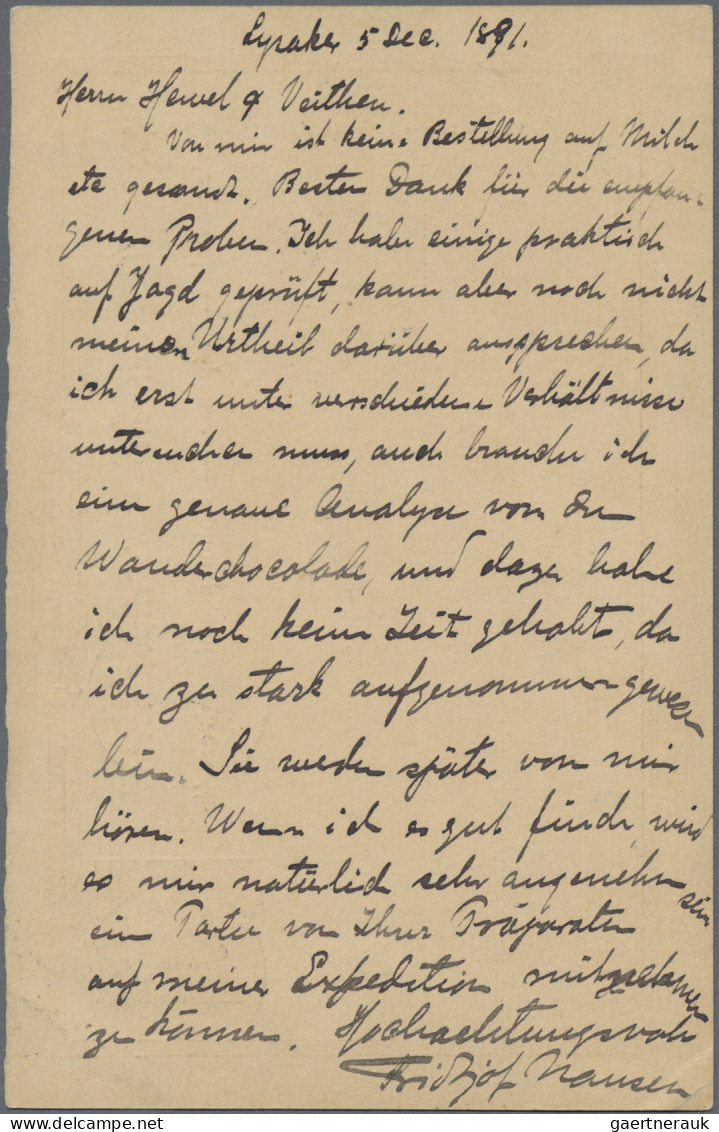 Lysaker 5 Dec. 1891.
Herrn Hewel & Veithen.
Von mir ist keine Bestellung auf Milch
etc gesandt. Besten Dank für die empfan-
genen Proben. Ich habe einige praktisch
auf Jagd geprüft, kann aber noch nicht
meinen Urtheil darüber aussprechen, da
ich erst unter verschiedene Verhältnisse
untersuchen muss, auch brauche ich
eine genaue Analyse von der
Wanderchocolade, und dazu habe
ich noch keine Zeit gehabt, da
ich zu stark aufgenommen gewesen
bin. Sie werden später von mir
hören. Wenn ich es gut finde, wird
es mir natürlich sehr angenehm sein
ein Partie von Ihrer Präparaten
auf meiner Expedition mitnehmen
zu können. Hochachtungsvoll
Fridtjof Nansen
gaertnerauk